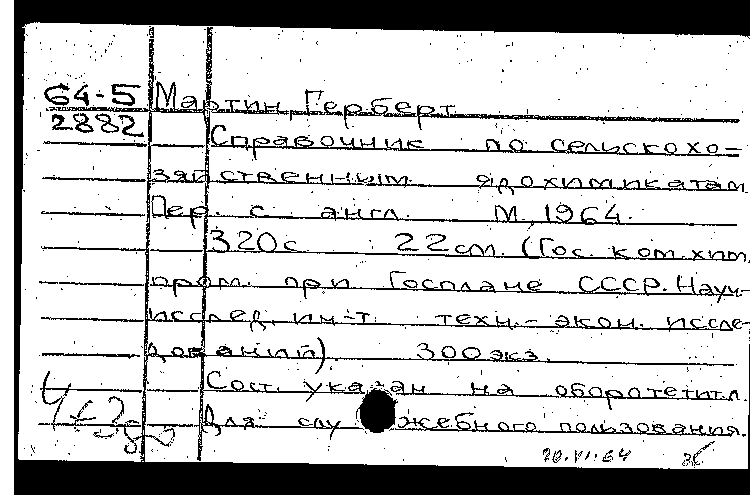 64-5 Мартин, Герберт
2882
Справочник по сельскохо-
зяйственным ядохимикатам
Пер. с англ. М, 1964.
320с 22см. (Гос. ком. хим.
пром. при Госплане СССР. Науч-
исслед. ин-т. техн.- экон. иссле-
дований). 300 экз.
Сост. указан на обороте тит. л.
Для служебного пользования.